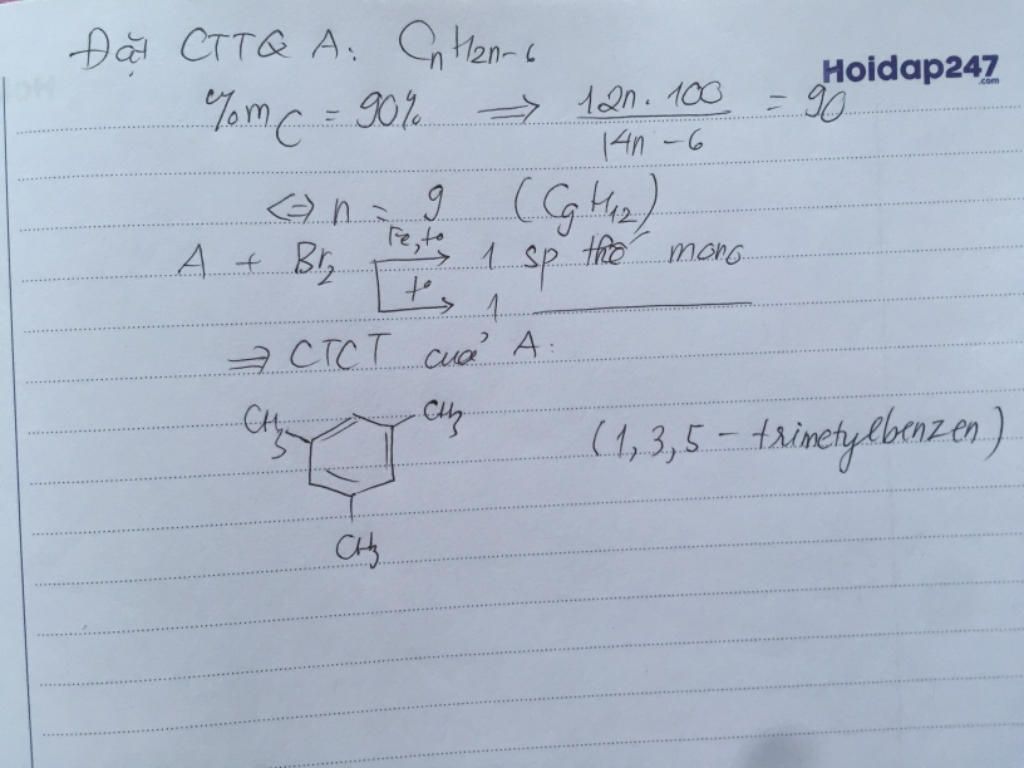 Đặt CTTQ A: CnH2n-6
Hoidap247
.com
%mC = 90% ⟹ 12n.100 / 14n-6 = 90
<=> n = 9 (C9H12)
A + Br2 Fe, to → 1 sp thế mono
to → 1 ________
=> CTCT của A:
CH3 CH3
(1,3,5-trimetylbenzen)
CH3